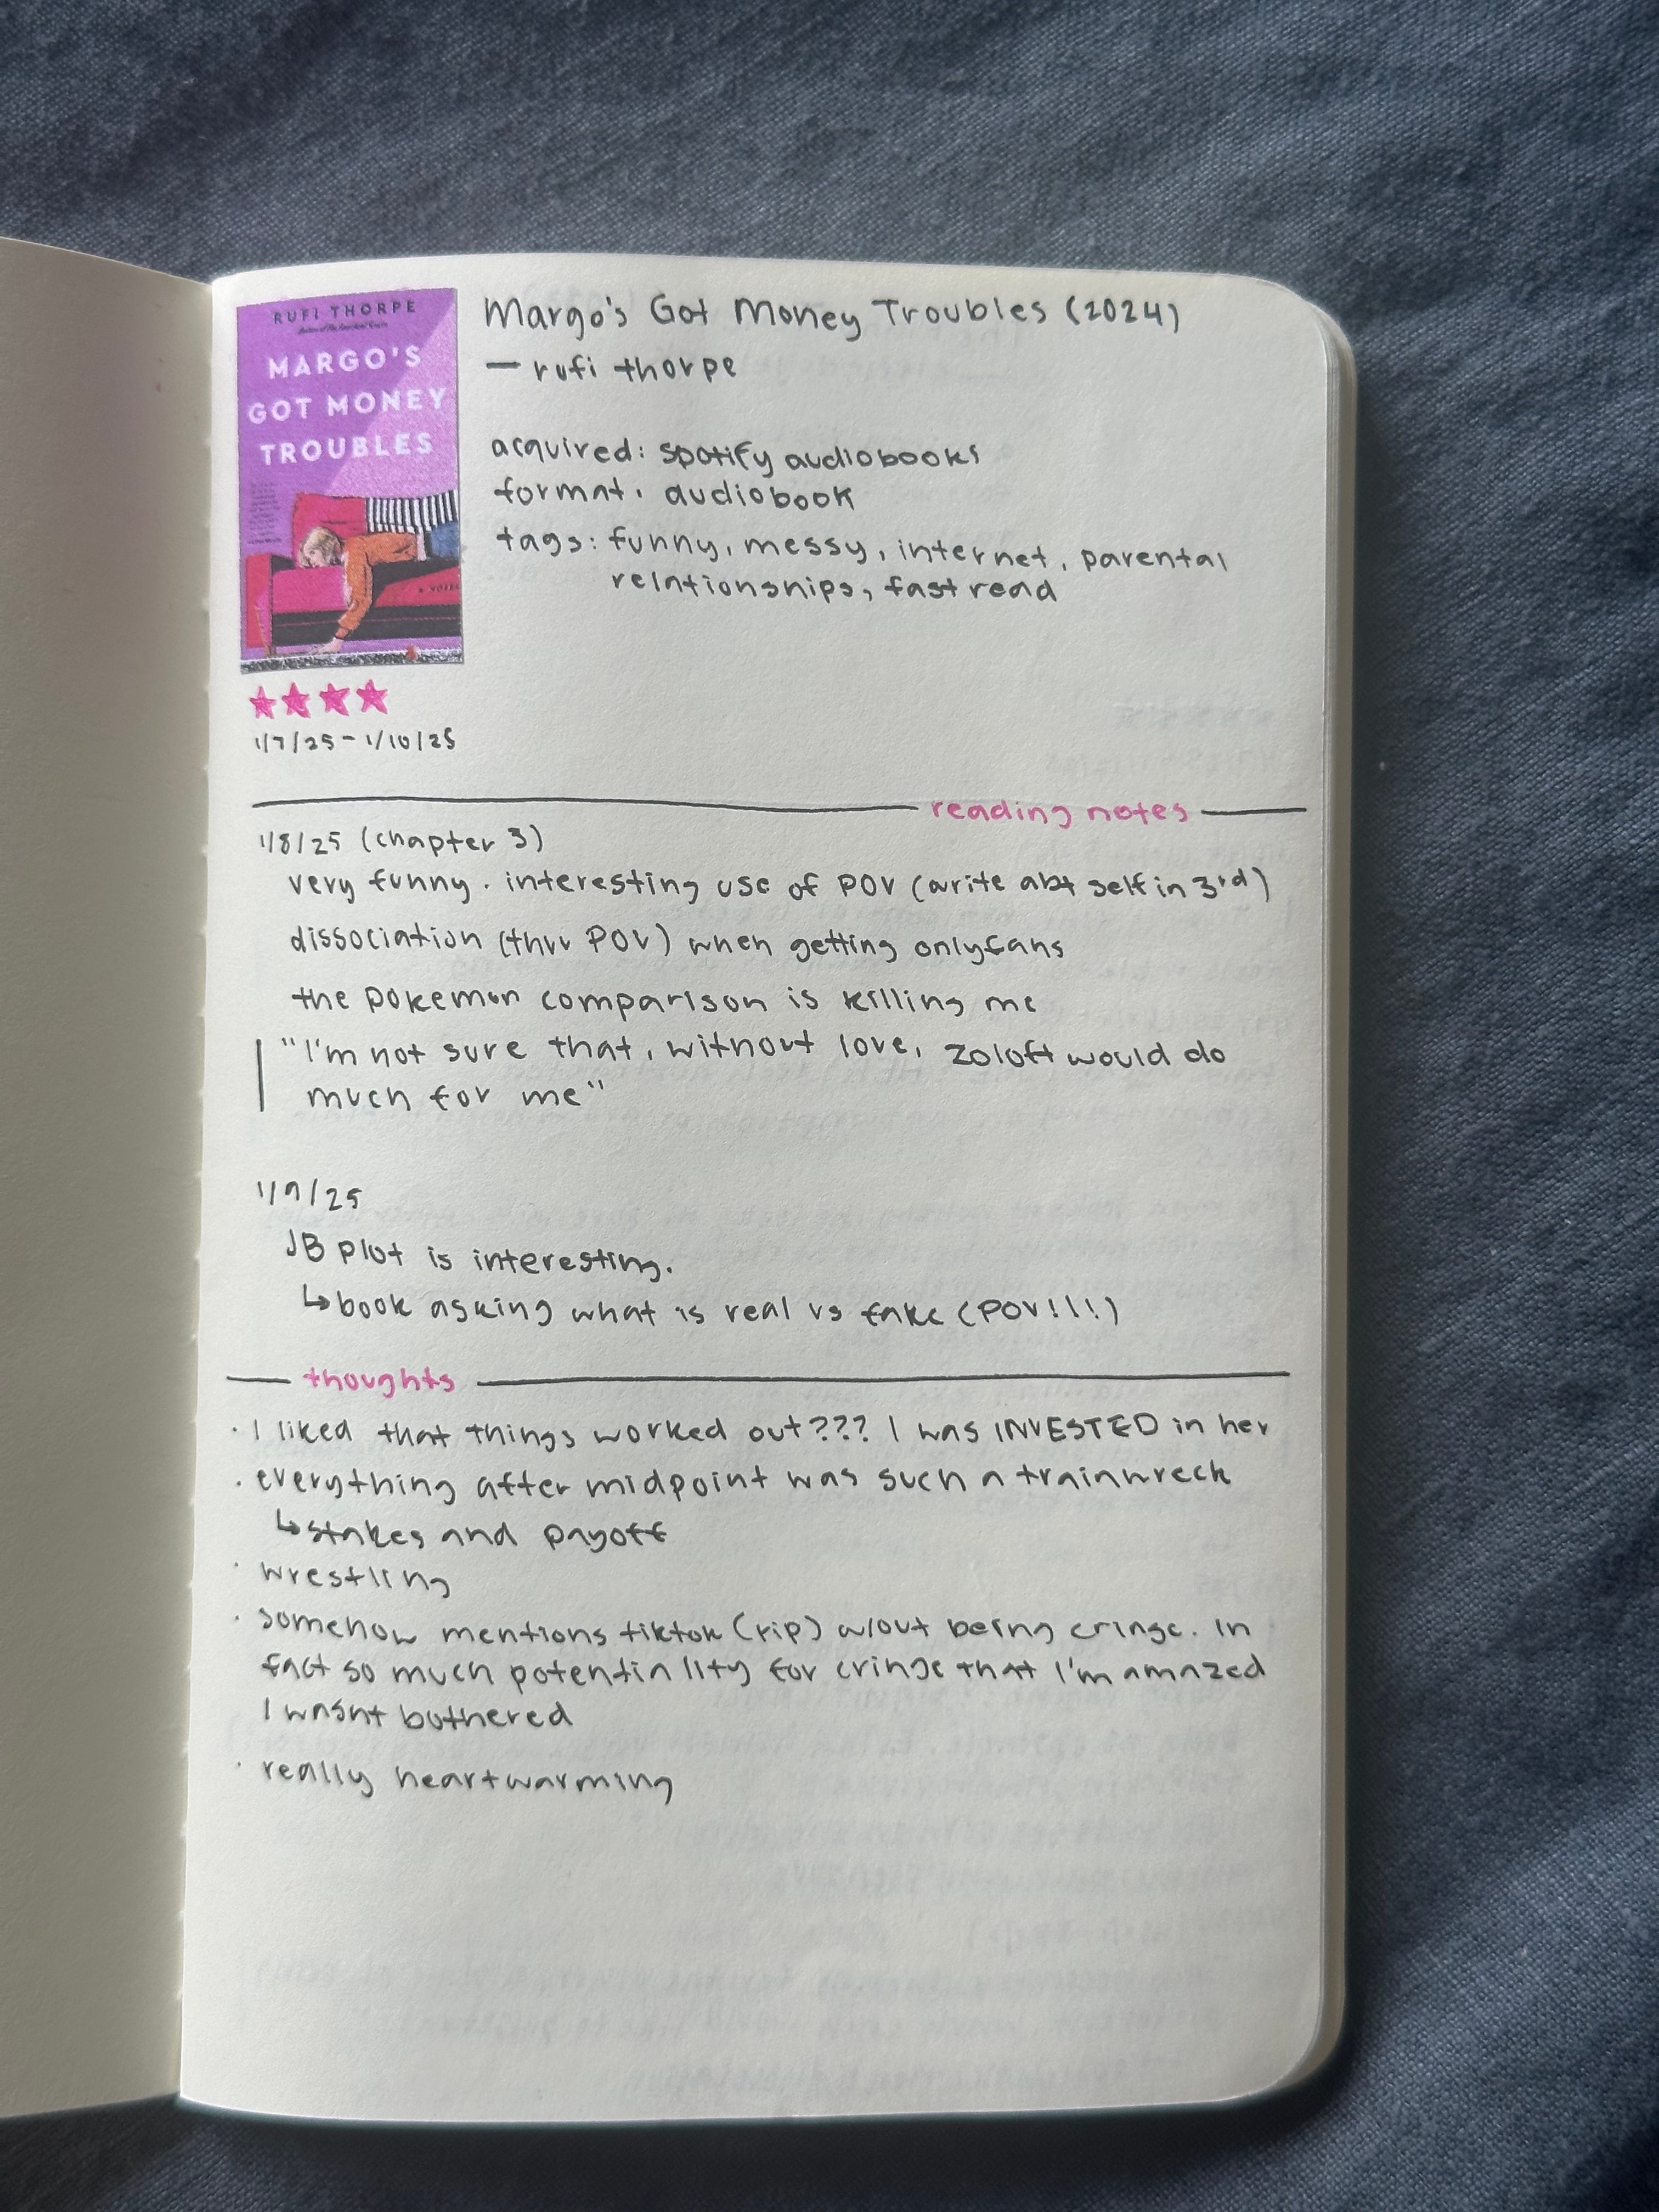 RUFI THORPE
MARGO'S
GOT MONEY
TROUBLES
Margo's Got Money Troubles (2024)
— rufi thorpe
acquired: spotify audiobooks
format: audiobook
tags: funny, messy, internet, parental
relationships, fast read
★★★★
1/7/25 - 1/10/25
reading notes
1/8/25 (chapter 3)
very funny. interesting use of POV (write abt self in 3rd)
dissociation (thru POV) when getting onlyfans
the pokemon comparison is killing me
"I'm not sure that, without love, zoloft would do
much for me"
1/9/25
JB plot is interesting.
↳ book asking what is real vs fake (POV!!!)
thoughts
· I liked that things worked out??? I was INVESTED in her
· everything after midpoint was such a trainwreck
↳ stakes and payoff
· wrestling
· somehow mentions tiktok (rip) w/out being cringe. In
fact so much potentiality for cringe that I'm amazed
I wasnt bothered
· really heartwarming